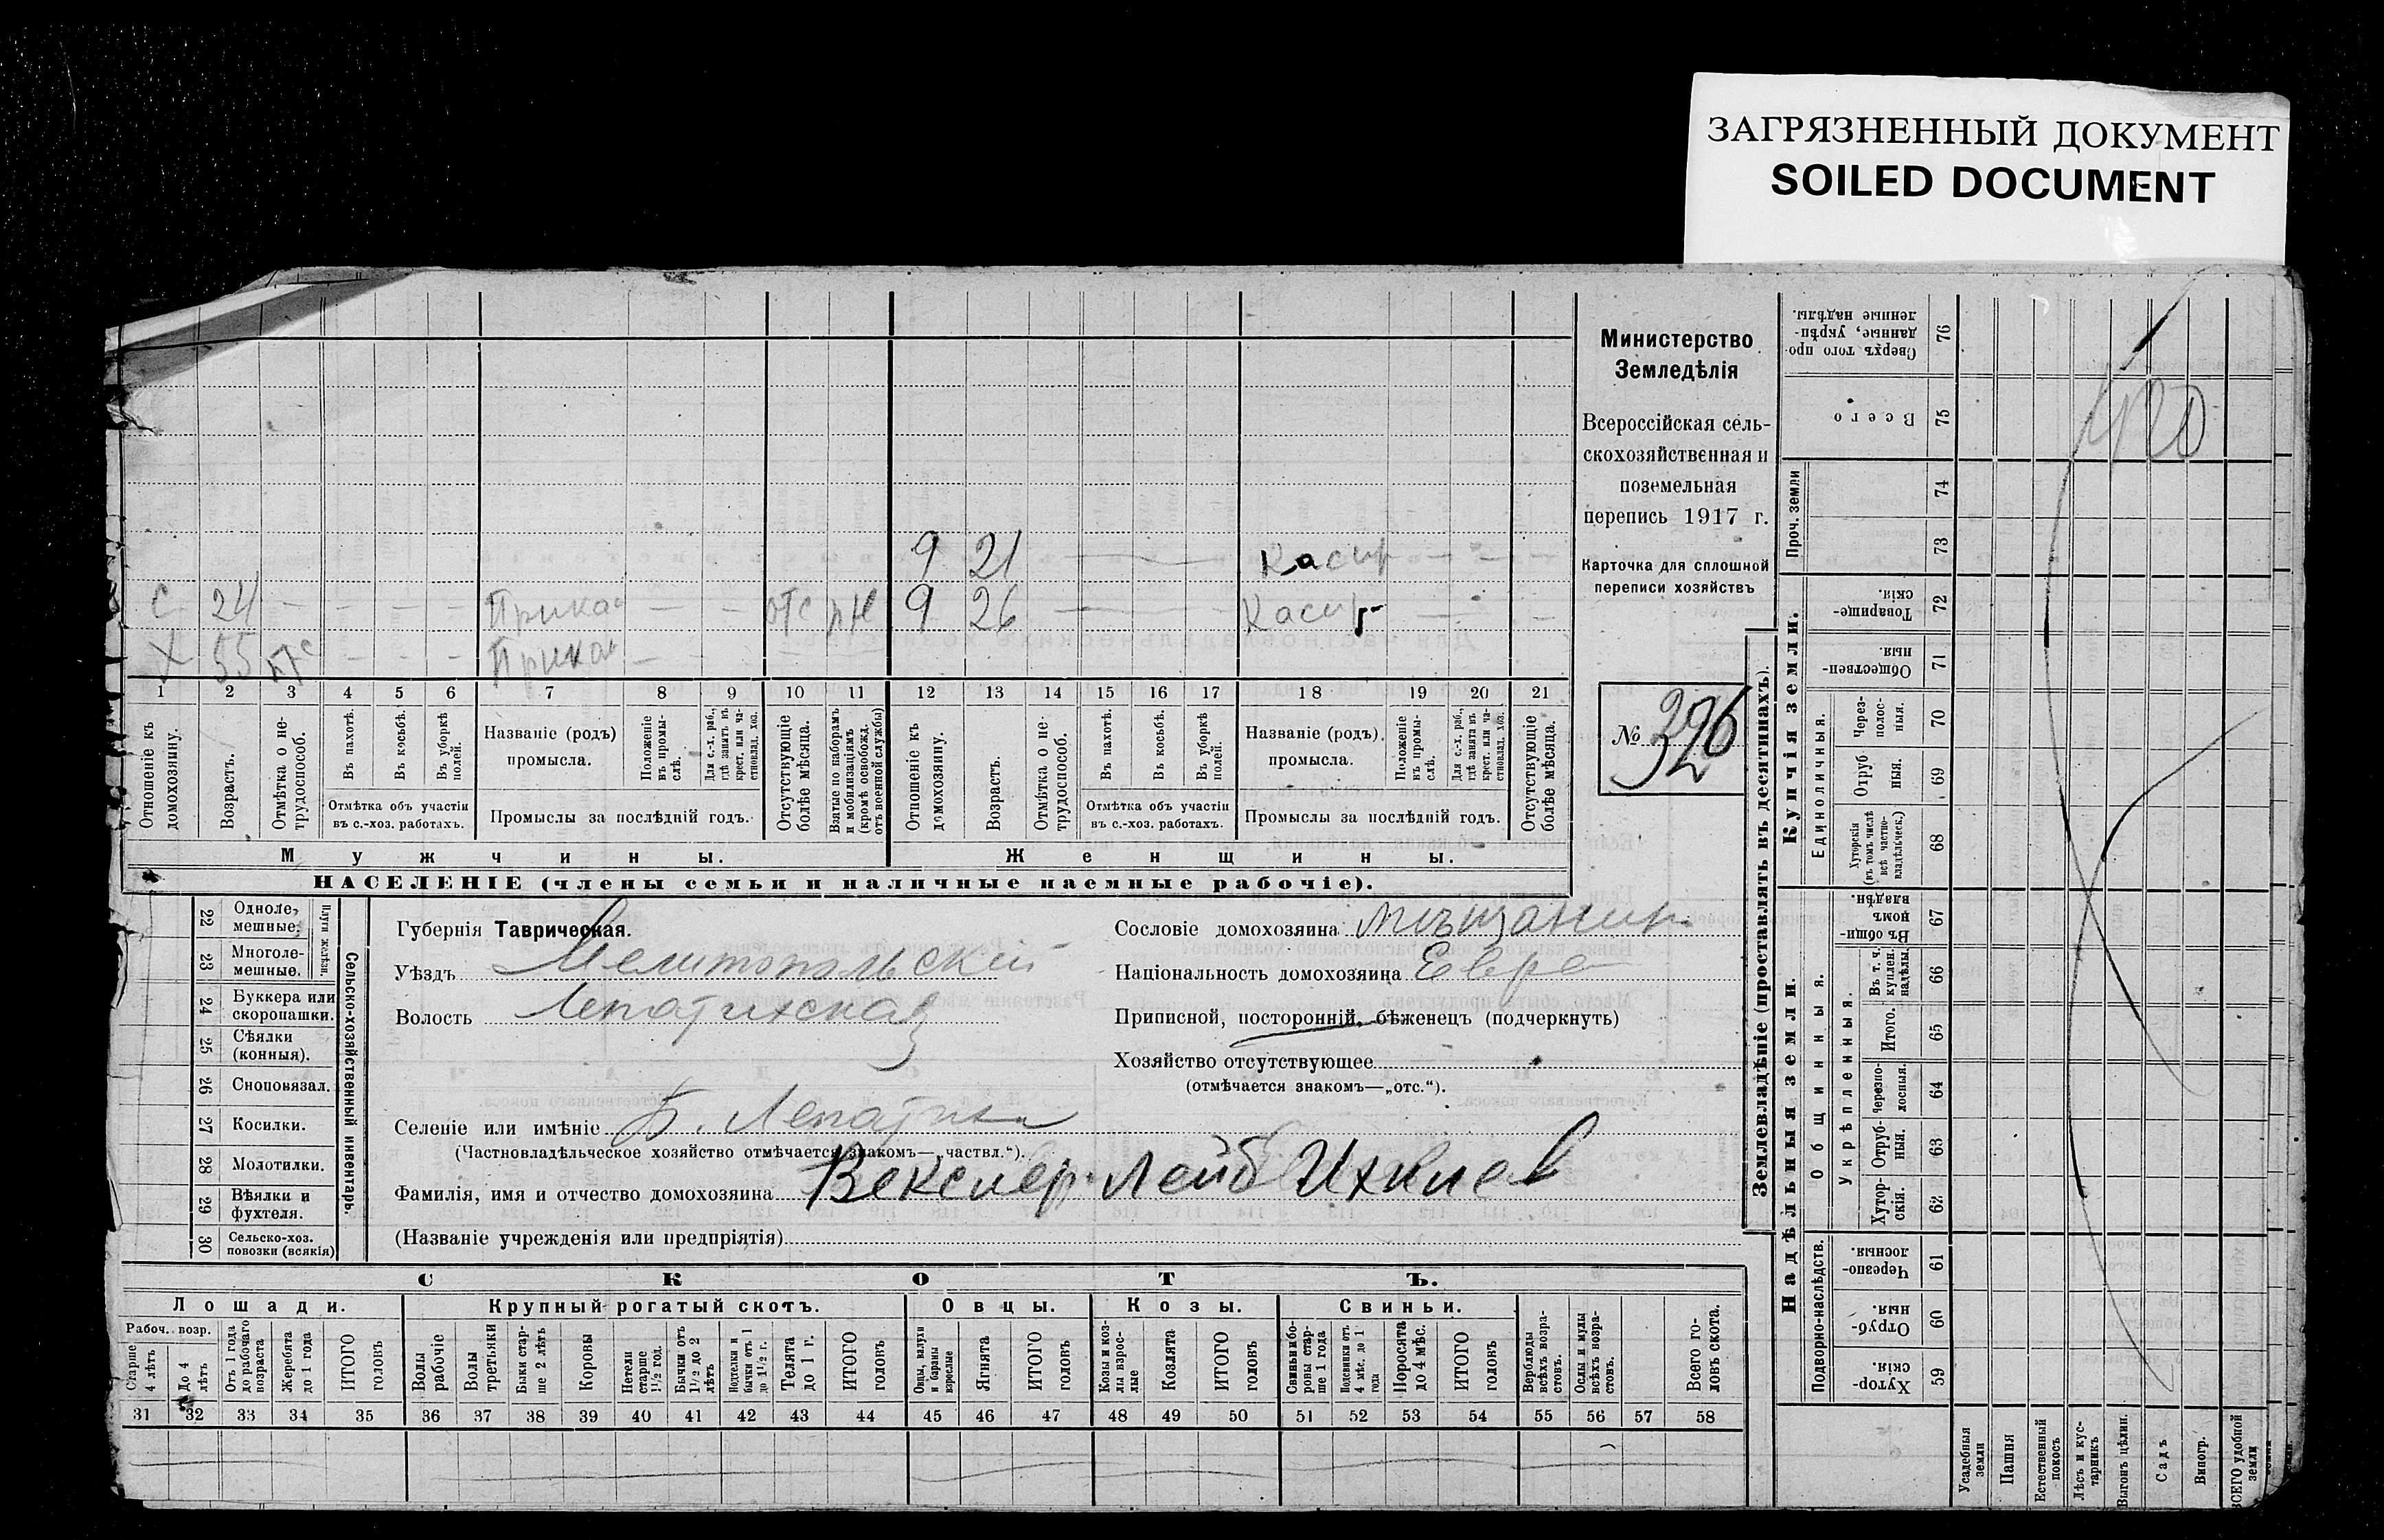 ЗАГРЯЗНЕННЫЙ ДОКУМЕНТ
SOILED DOCUMENT
Министерство
Земледѣлія
Всероссійская сель-
скохозяйственная и
поземельная
перепись 1917 г.
Карточка для сплошной
переписи хозяйствъ
№ 326
9 21 Касир
С 24 — — — Прика — — отс рН 9 26 Касир
Х 55 — — — Прика —
1 2 3 4 5 6 7 8 9 10 11 12 13 14 15 16 17 18 19 20 21
Отношеніе къ домохозяину.
Возрастъ.
Отмѣтка о не-трудоспособ.
Въ пахотѣ.
Въ косьбѣ.
Въ уборкѣ полей.
Отмѣтка объ участіи
въ с.-хоз. работахъ.
Названіе (родъ)
промысла.
Положеніе въ промы-слѣ.
Для с.-х. раб., гдѣ занятъ въ крест. или ча-стновлад. хоз.
Промыслы за послѣдній годъ.
Отсутствующіе болѣе мѣсяца.
Взятые по наборамъ и мобилизаціямъ (кромѣ освобожд. отъ военной службы)
Отношеніе къ домохозяину.
Возрастъ.
Отмѣтка о не-трудоспособ.
Въ пахотѣ.
Въ косьбѣ.
Въ уборкѣ полей.
Отмѣтка объ участіи
въ с.-хоз. работахъ.
Названіе (родъ)
промысла.
Положеніе въ промы-слѣ.
Для с.-х. раб., гдѣ занята въ крест. или ча-стновлад. хоз.
Промыслы за послѣдній годъ.
Отсутствующіе болѣе мѣсяца.
Мужчины. Женщины.
НАСЕЛЕНІЕ (члены семьи и наличные наемные рабочіе).
Сельско-хозяйственный инвентарь.
Плуги желѣзн.
22 Одноле-мешные.
23 Многоле-мешные.
24 Буккера или скоропашки.
25 Сѣялки (конныя).
26 Сноповязал.
27 Косилки.
28 Молотилки.
29 Вѣялки и фухтеля.
30 Сельско-хоз. повозки (всякія)
Губернія Таврическая.
Уѣздъ Мелитопольскій
Волость Лепатихская
Селеніе или имѣніе Б. Лепатиха
(Частновладѣльческое хозяйство отмѣчается знакомъ—„частвл.“).
Фамилія, имя и отчество домохозяина Векслер Лейб Ихилев
(Названіе учрежденія или предпріятія)
Сословіе домохозяина мѣщанин
Національность домохозяина Евре
Приписной, посторонній, бѣженецъ (подчеркнуть)
Хозяйство отсутствующее
(отмѣчается знакомъ—„отс.“).
СКОТЪ.
Лошади. Крупный рогатый скотъ. Овцы. Козы. Свиньи.
Рабоч. возр.
Старше 4 лѣтъ
До 4 лѣтъ
Отъ 1 года до рабочаго возраста
Жеребята до 1 года
ИТОГО головъ
Волы рабочіе
Волы третьяки
Быки стар-ше 2 лѣтъ
Коровы
Нетели старше 1½ год.
Бычки отъ 1½ до 2 лѣтъ
Подтелки и бычки отъ 1 до 1½ г.
Телята до 1 г.
ИТОГО головъ
Овцы, валухи и бараны взрослые
Ягнята
ИТОГО головъ
Козы и коз-лы взрос-лые
Козлята
ИТОГО головъ
Свиньи и бо-ровы стар-ше 1 года
Подсвинки отъ 4 мѣс. до 1 года
Поросята до 4 мѣс.
ИТОГО головъ
Верблюды всѣхъ возра-стовъ.
Ослы и мулы всѣхъ возра-стовъ.
Всего го-ловъ скота.
31 32 33 34 35 36 37 38 39 40 41 42 43 44 45 46 47 48 49 50 51 52 53 54 55 56 57 58
Землевладѣніе (проставлять въ десятинахъ).
Надѣльныя земли. Купчія земли.
Подворно-наслѣдств.
Общинныя.
Укрѣпленныя.
Единоличныя.
Проч. земли
Сверхъ того про-данные, укрѣп-ленные надѣлы. 76
Всего 75
74
73
Товарище-скія. 72
Обществен-ныя. 71
Через-полос-ныя. 70
Отруб-ныя. 69
Хуторскія (въ томъ числѣ всѣ частно-владѣльческ.) 68
Въ общин-номъ владѣн. 67
Въ т. ч. куплен. надѣлы. 66
Итого. 65
Черезпо-лосныя. 64
Отруб-ныя. 63
Хутор-скія. 62
Черезпо-лосныя. 61
Отруб-ныя. 60
Хутор-скія. 59
Усадебныя земли
Пашня
Естественный покосъ
Лѣсъ и кус-тарникъ
Выгонъ цѣлин.
Садъ
Виногр.
ВСЕГО удобной земли